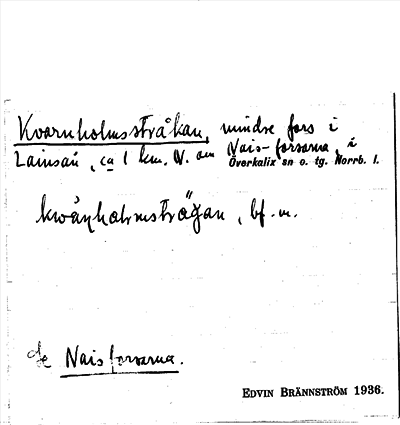 Kvarnholmsstråkan, mindre fors i
Lainsån, ca 1 km. N. om Nais-forsarna, i
Överkalix sn o. tg. Norrb. l.
kwåṇholmsträgan, bf. m.
Se Naisforsarna.
EDVIN BRÄNNSTRÖM 1936.